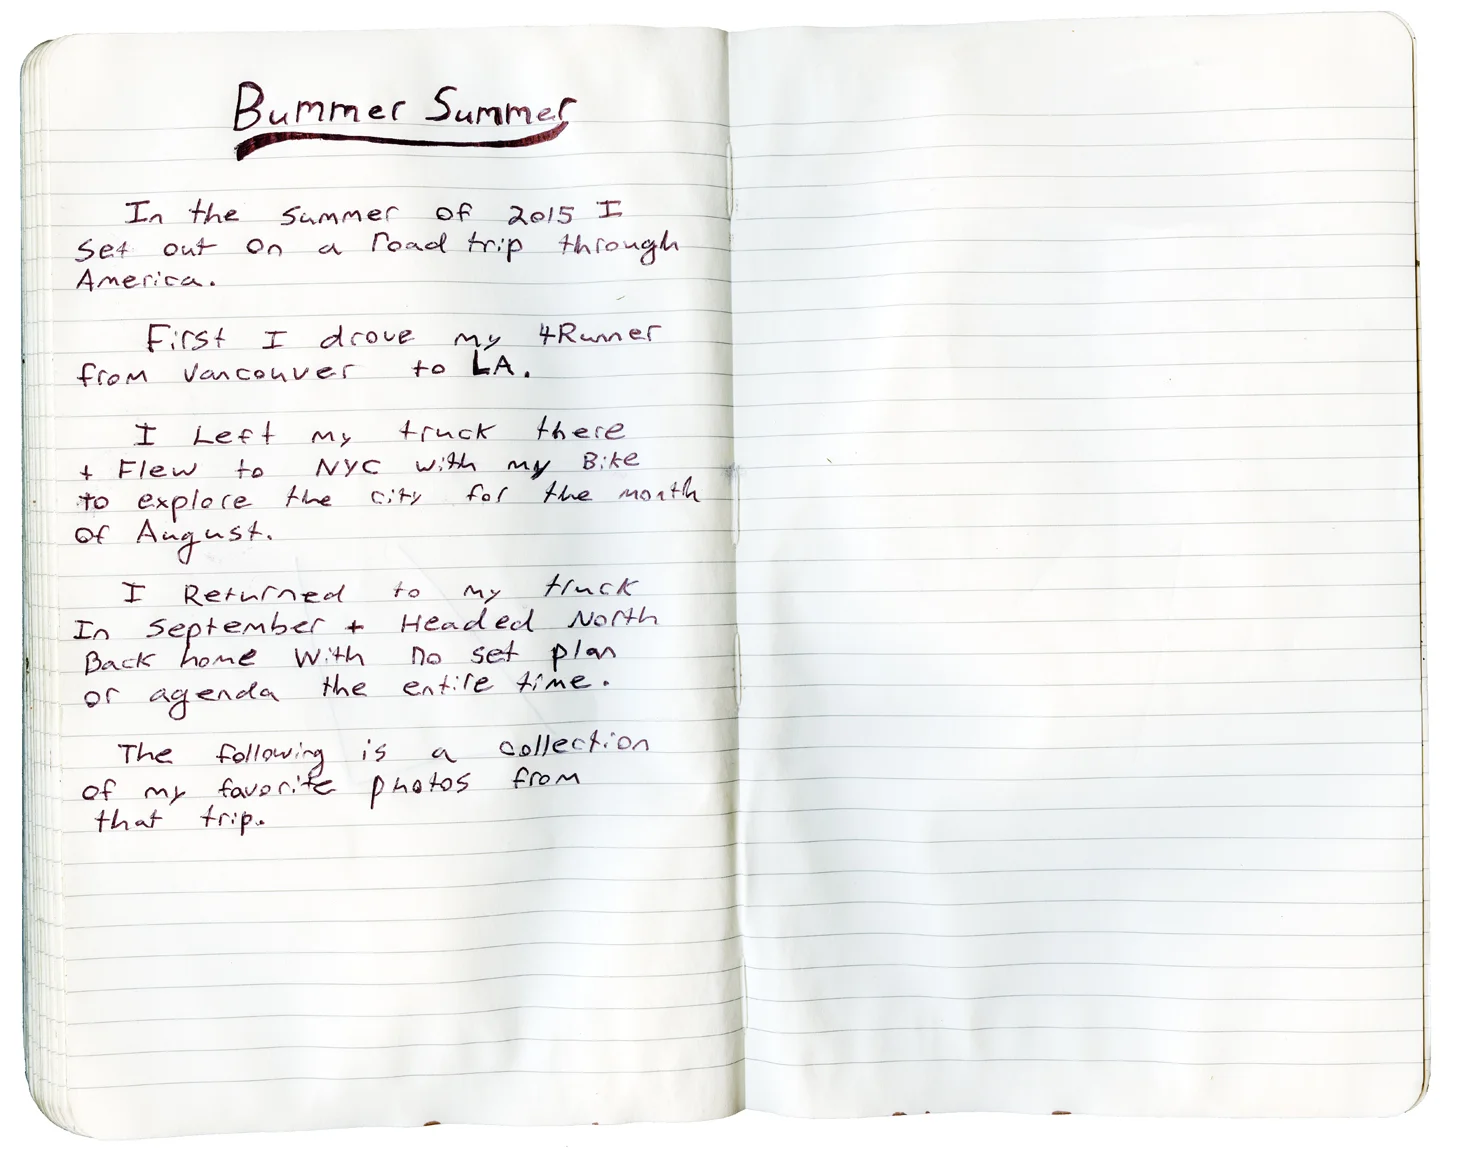 Bummer Summer
In the summer of 2015 I
set out on a road trip through
America.
First I drove my 4Runner
from Vancouver to LA.
I Left my truck there
+ Flew to NYC with my Bike
to explore the city for the month
of August.
I Returned to my truck
In September + Headed North
Back home With no set plan
or agenda the entire time.
The following is a collection
of my favorite photos from
that trip.